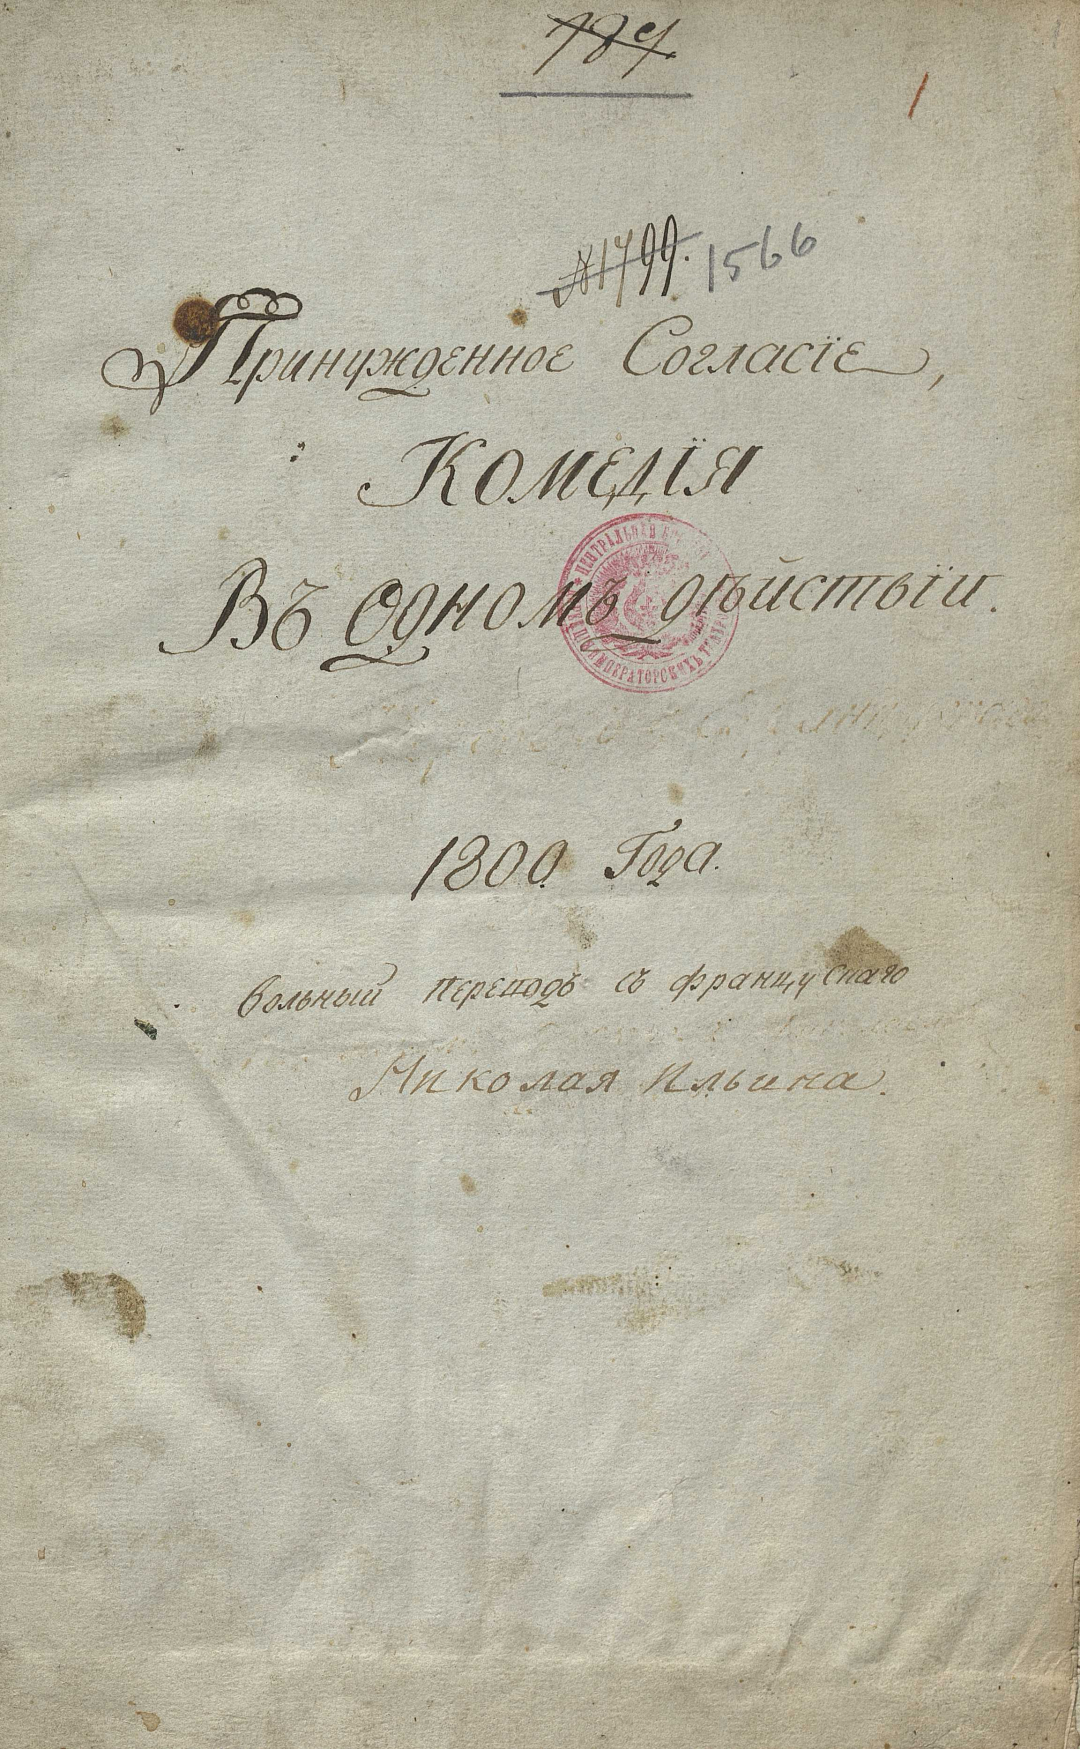 184
1
№1799. 1566
Принужденное Согласїе,
Комедїя
Въ Одномъ дѣйствїи.
ЦЕНТРАЛЬНАЯ
ИМПЕРАТОРСКИХЪ ТЕАТР
1800 Года.
вольный переводъ съ французскаго
Николая Ильина.